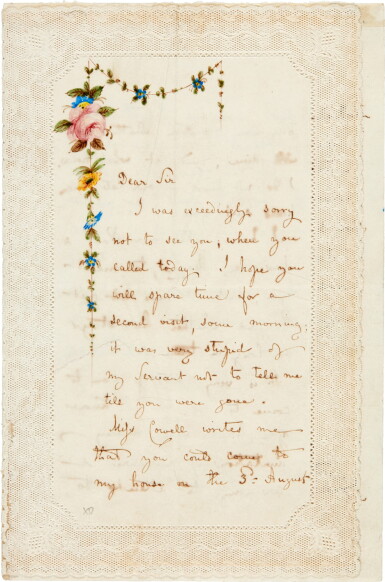 Dear Sir
I was exceedingly sorry
not to see you, when you
called today. I hope you
will spare time for a
second visit, some morning;
it was very stupid of
my Servant not to tell me
till you were gone.
Miss Cowell writes me
that you could come to
my house on the 3rd August